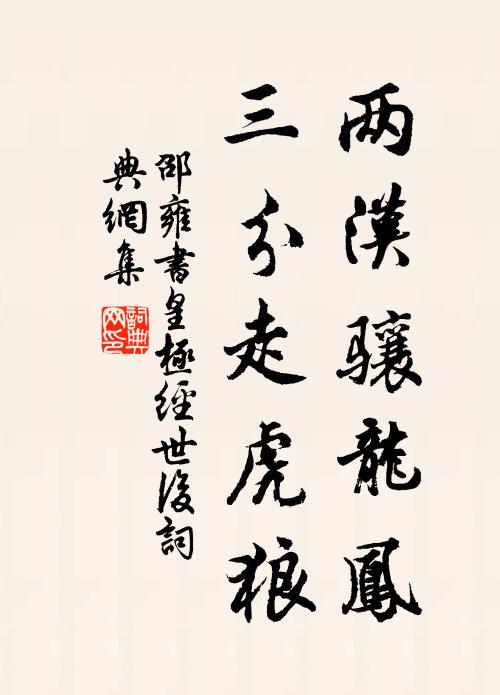 两漢骧龍鳳
三分走虎狼
邵雍書皇極經世後詞
典網集
詞典网印